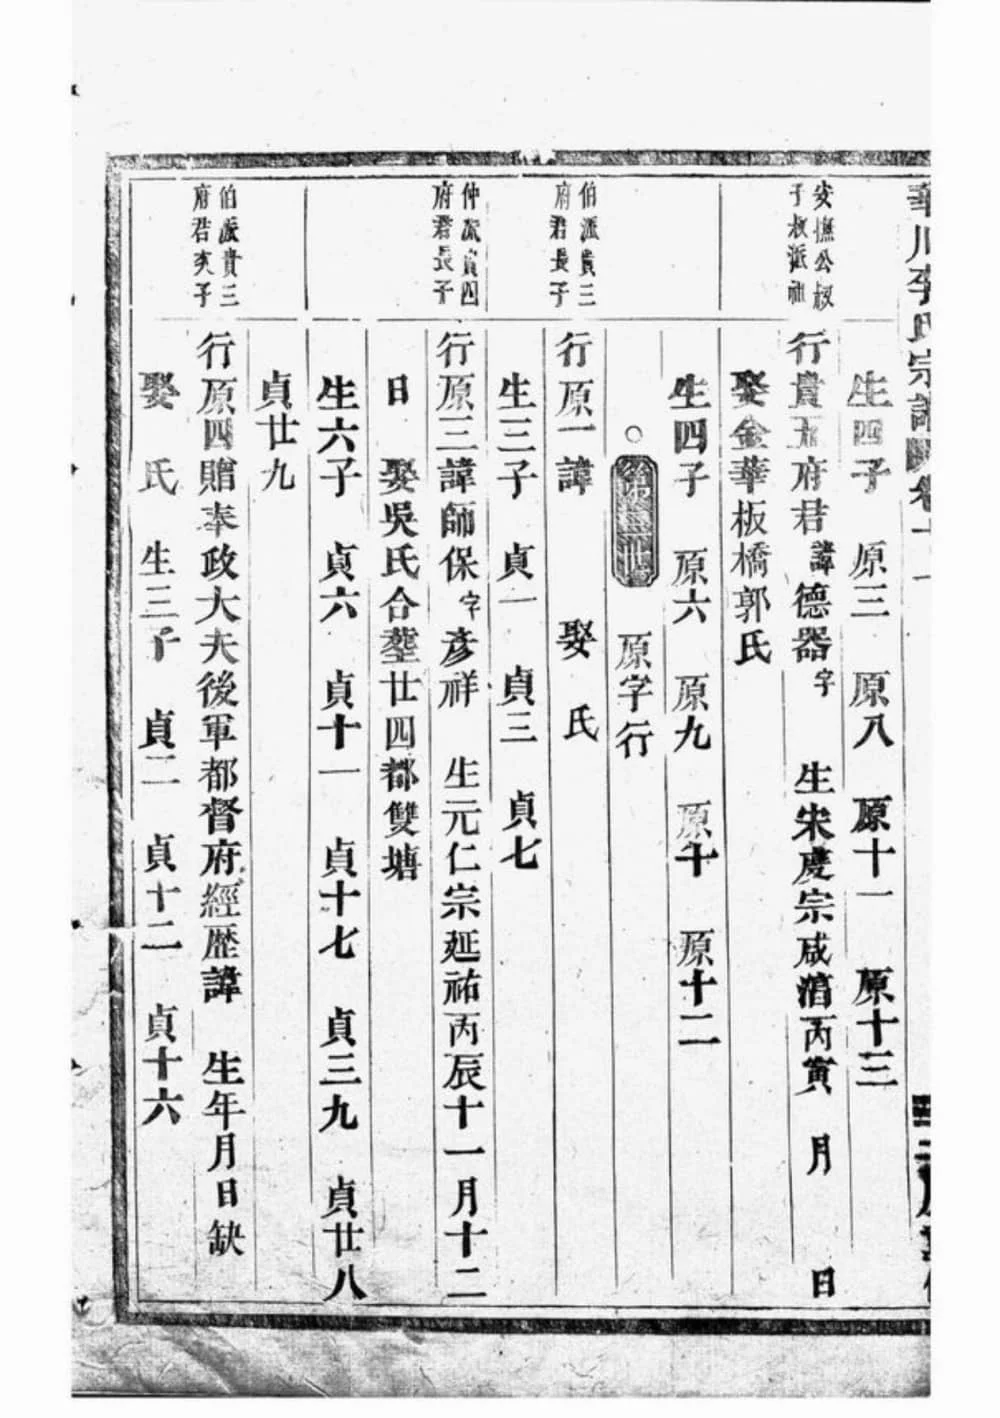 華川李氏宗譜 卷十一
生四子 原三 原八 原十一 原十三
安撫公叔
子叔派祖
行貴五府君諱德器字 生宋度宗咸淳丙寅 月 日
娶金華板橋郭氏
生四子 原六 原九 原十 原十二
○ 原字行
伯派貴三
府君長子
行原一諱 娶 氏
生三子 貞一 貞三 貞七
仲派貴四
府君長子
行原三諱師保字彥祥 生元仁宗延祐丙辰十一月十二
日 娶吳氏合塟廿四都雙塘
生六子 貞六 貞十一 貞十七 貞三九 貞廿八
貞廿九
伯派貴三
府君次子
行原四贈奉政大夫後軍都督府經歷諱 生年月日缺
娶 氏 生三子 貞二 貞十二 貞十六